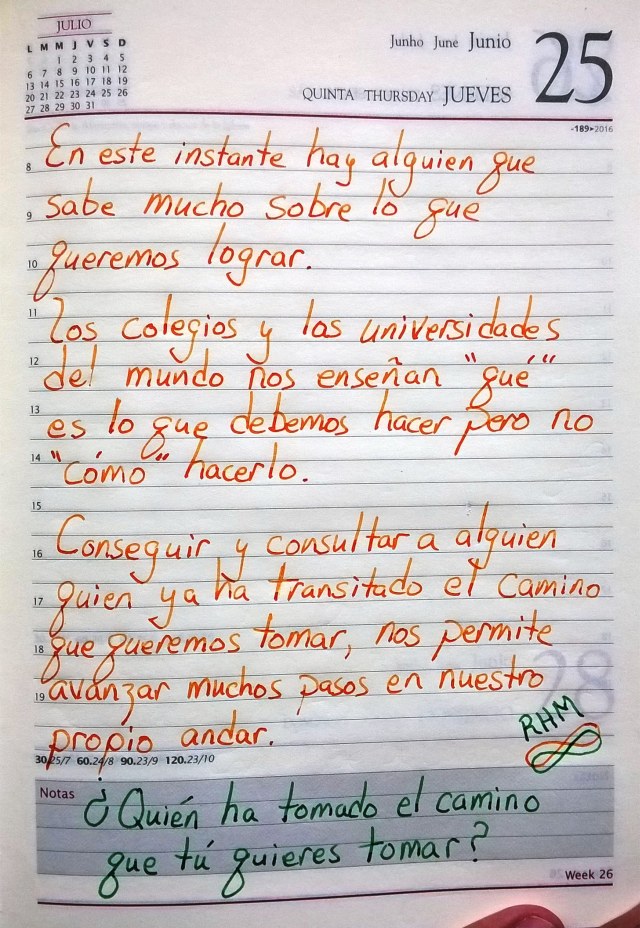 JULIO
L M M J V S D
1 2 3 4 5
6 7 8 9 10 11 12
13 14 15 16 17 18 19
20 21 22 23 24 25 26
27 28 29 30 31
Junho June Junio 25
QUINTA THURSDAY JUEVES
-189▸2016
8 En este instante hay alguien que
9 sabe mucho sobre lo que
10 queremos lograr.
11 Los colegios y las universidades
12 del mundo nos enseñan "qué"
13 es lo que debemos hacer pero no
14 "cómo" hacerlo.
15
16 Conseguir y consultar a alguien
17 quien ya ha transitado el camino
18 que queremos tomar, nos permite
19 avanzar muchos pasos en nuestro
propio andar.
RHM
30.25/7 60.24/8 90.23/9 120.23/10
Notas ¿Quién ha tomado el camino
que tú quieres tomar?
Week 26